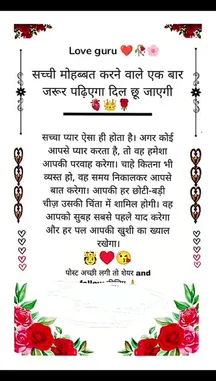 Love guru ❤️🥀🌸
सच्ची मोहब्बत करने वाले एक बार
जरूर पढ़िएगा दिल छू जाएगी
💘👑🌹
सच्चा प्यार ऐसा ही होता है। अगर कोई
आपसे प्यार करता है, तो वह हमेशा
आपकी परवाह करेगा। चाहे कितना भी
व्यस्त हो, वह समय निकालकर आपसे
बात करेगा। आपकी हर छोटी-बड़ी
चीज़ उसकी चिंता में शामिल होगी। वह
आपको सुबह सबसे पहले याद करेगा
और हर पल आपकी खुशी का ख्याल
रखेगा।
पोस्ट अच्छी लगी तो शेयर and